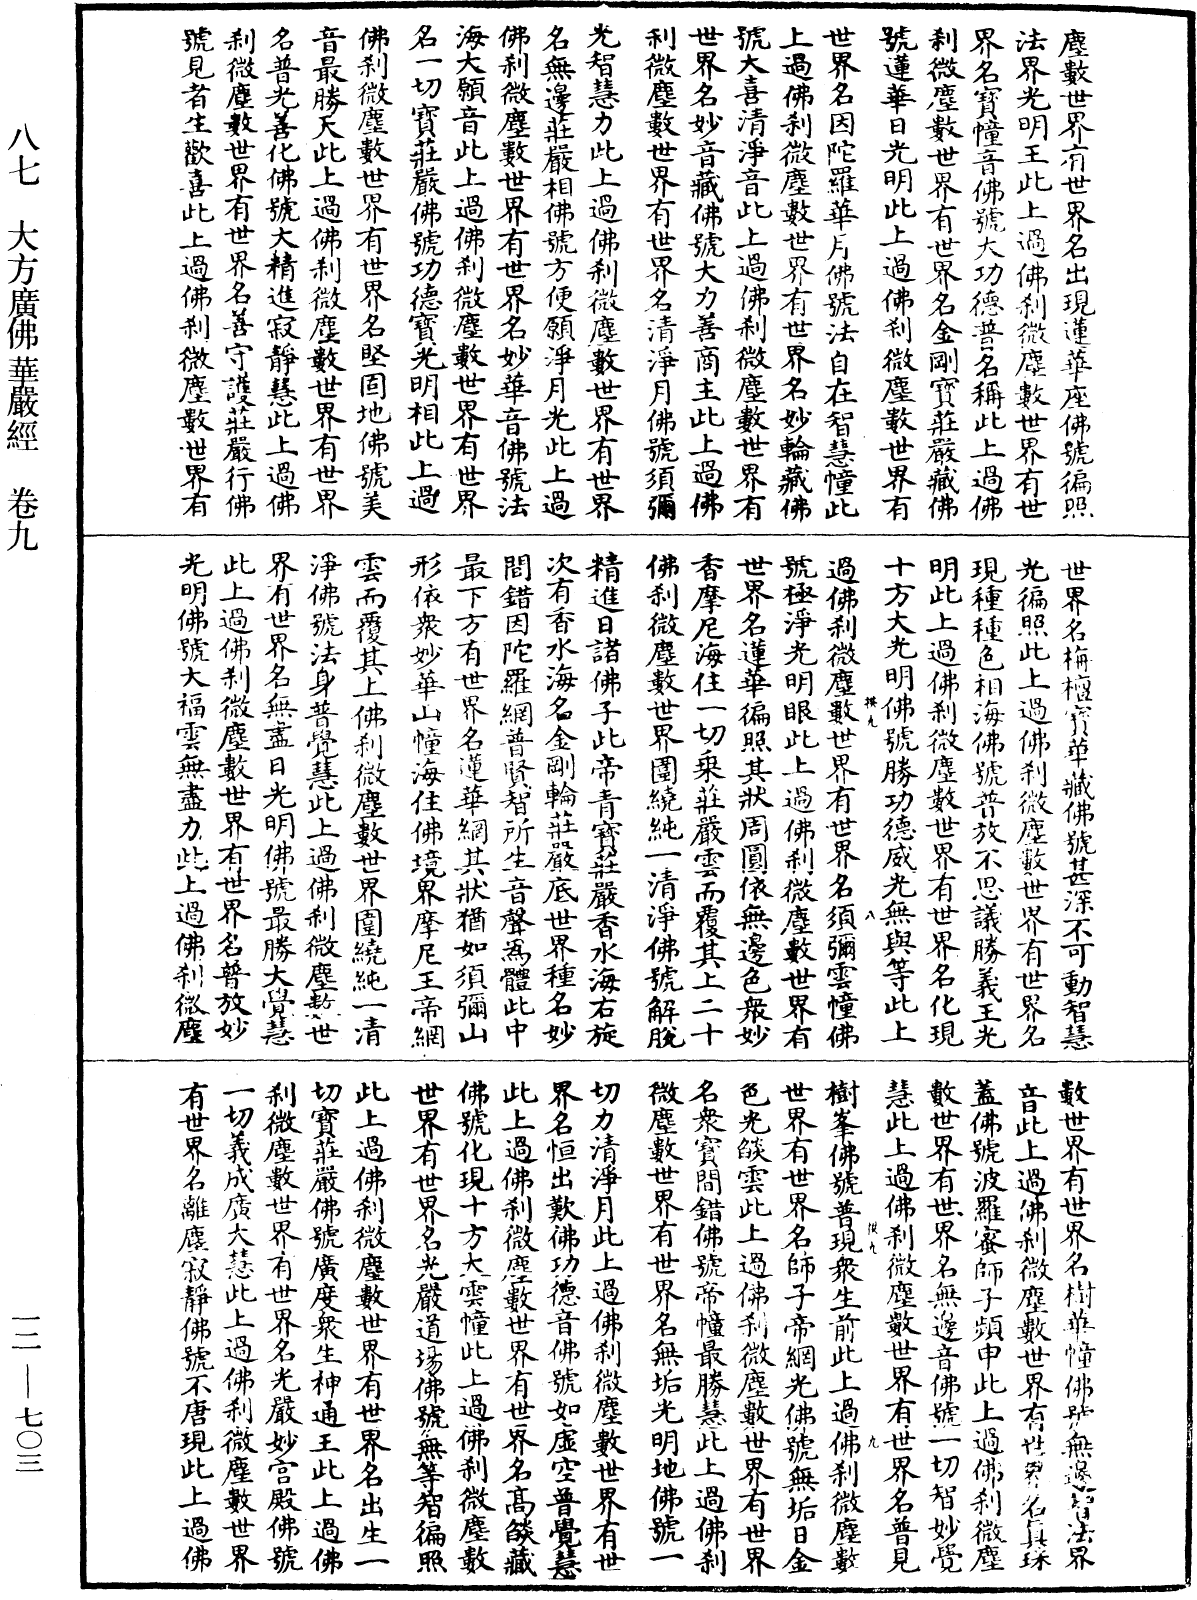 塵數世界有世界名出現蓮華座佛號徧照
法界光明王此上過佛刹微塵數世界有世
界名寶幢音佛號大功德普名稱此上過佛
刹微塵數世界有世界名金剛寶莊嚴藏佛
號蓮華日光明此上過佛刹微塵數世界有
世界名因陀羅華月佛號法自在智慧幢此
上過佛刹微塵數世界有世界名妙輪藏佛
號大喜清淨音此上過佛刹微塵數世界有
世界名妙音藏佛號大力善商主此上過佛
刹微塵數世界有世界名清淨月佛號須彌
光智慧力此上過佛刹微塵數世界有世界
名無邊莊嚴相佛號方便願淨月光此上過
佛刹微塵數世界有世界名妙華音佛號法
海大願音此上過佛刹微塵數世界有世界
名一切寶莊嚴佛號功德寶光明相此上過
佛刹微塵數世界有世界名堅固地佛號美
音最勝天此上過佛刹微塵數世界有世界
名普光善化佛號大精進寂靜慧此上過佛
刹微塵數世界有世界名善守護莊嚴行佛
號見者生歡喜此上過佛刹微塵數世界有
世界名栴檀寶華藏佛號甚深不可動智慧
光徧照此上過佛刹微塵數世界有世界名
現種種色相海佛號普放不思議勝義王光
明此上過佛刹微塵數世界有世界名化現
十方大光明佛號勝功德威光無與等此上
過佛刹微塵數世界有世界名須彌雲幢佛
號極淨光明眼此上過佛刹微塵數世界有
世界名蓮華徧照其狀周圓依無邊色衆妙
香摩尼海住一切乘莊嚴雲而覆其上二十
佛刹微塵數世界圍繞純一清淨佛號解脫
精進日諸佛子此帝青寶莊嚴香水海右旋
次有香水海名金剛輪莊嚴底世界種名妙
間錯因陀羅網普賢智所生音聲爲體此中
最下方有世界名蓮華網其狀猶如須彌山
形依衆妙華山幢海住佛境界摩尼王帝網
雲而覆其上佛刹微塵數世界圍繞純一清
淨佛號法身普覺慧此上過佛刹微塵數世
界有世界名無盡日光明佛號最勝大覺慧
此上過佛刹微塵數世界有世界名普放妙
光明佛號大福雲無盡力此上過佛刹微塵
數世界有世界名樹華幢佛號無邊智法界
音此上過佛刹微塵數世界有世界名真珠
蓋佛號波羅蜜師子頻申此上過佛刹微塵
數世界有世界名無邊音佛號一切智妙覺
慧此上過佛刹微塵數世界有世界名普見
樹峯佛號普現衆生前此上過佛刹微塵數
世界有世界名師子帝網光佛號無垢日金
色光燄雲此上過佛刹微塵數世界有世界
名衆寶間錯佛號帝幢最勝慧此上過佛刹
微塵數世界有世界名無垢光明地佛號一
切力清淨月此上過佛刹微塵數世界有世
界名恒出歎佛功德音佛號如虛空普覺慧
此上過佛刹微塵數世界有世界名高燄藏
佛號化現十方大雲幢此上過佛刹微塵數
世界有世界名光嚴道場佛號無等智徧照
此上過佛刹微塵數世界有世界名出生一
切寶莊嚴佛號廣度衆生神通王此上過佛
刹微塵數世界有世界名光嚴妙宮殿佛號
一切義成廣大慧此上過佛刹微塵數世界
有世界名離塵寂靜佛號不唐現此上過佛
八七 大方廣佛華嚴經 卷九
一二—七〇三